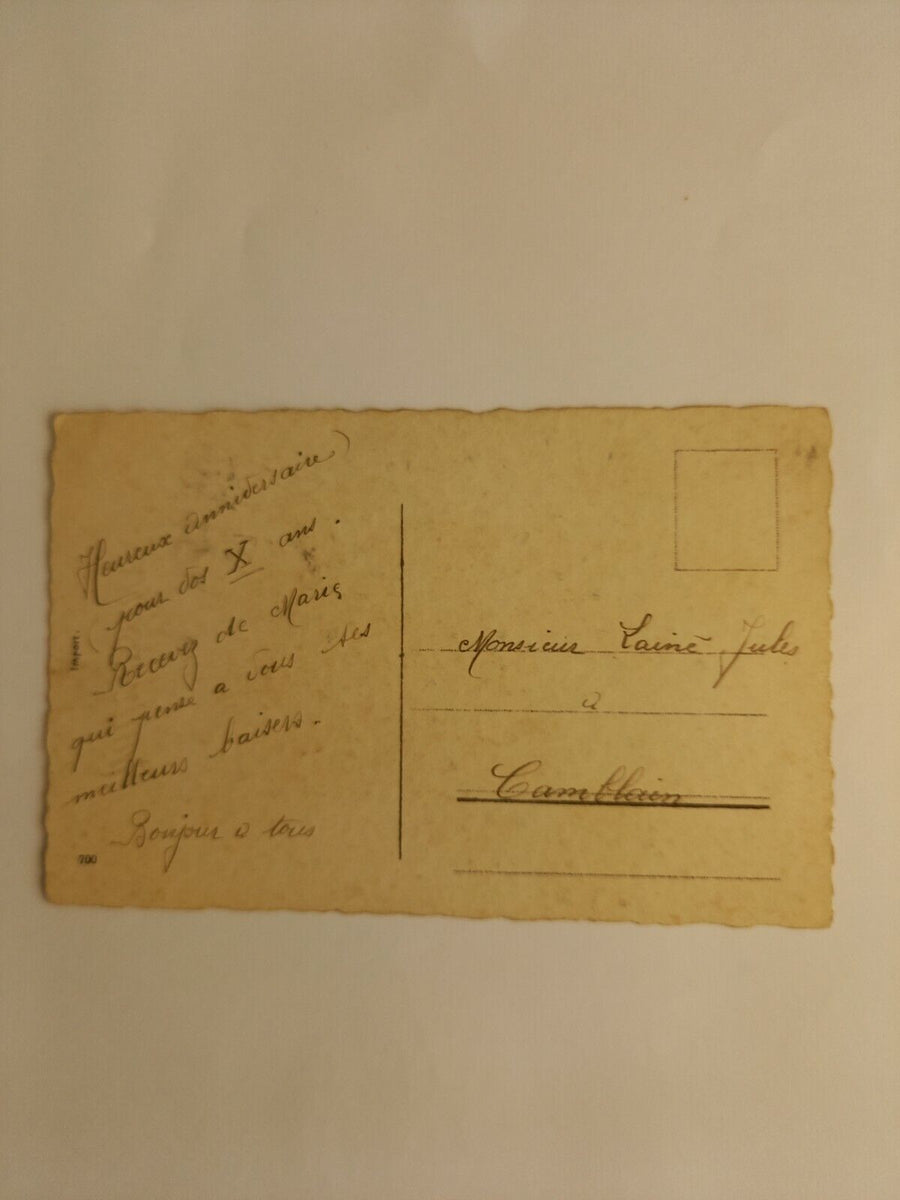 Heureux anniversaire
pour vos X ans.
Recevez de Marie
qui pense a vous ses
meilleurs baisers.
Bonjour a tous
Import.
700
Monsieur Lainé Jules
a
Camblain